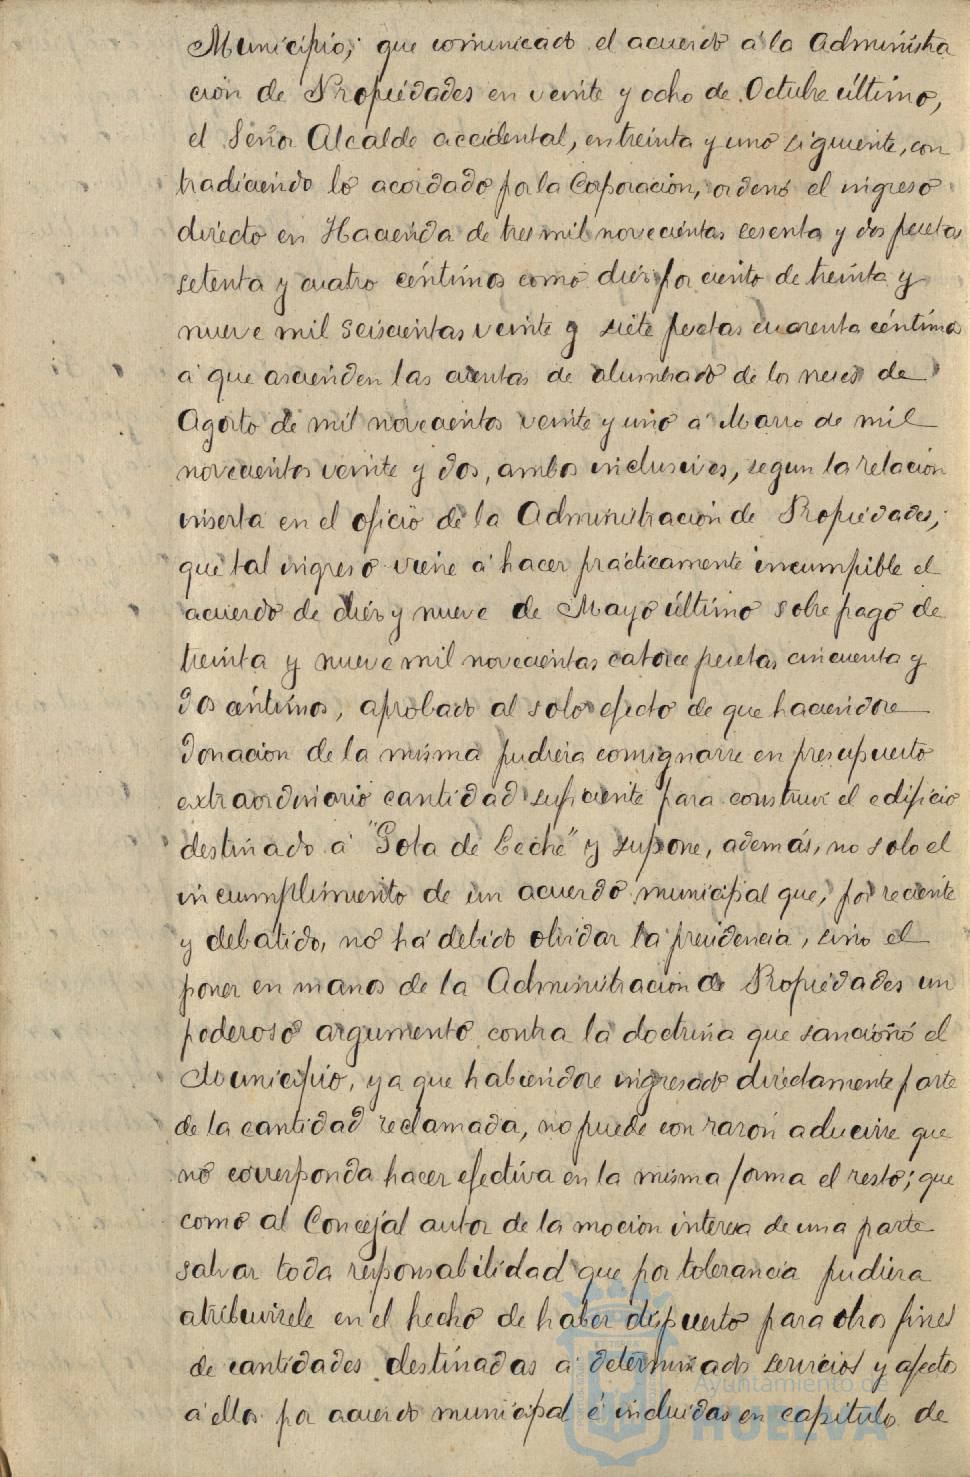 Municipio; que comunicado el acuerdo á la Administra
ción de Propiedades en veinte y ocho de Octubre último,
el Señor Alcalde accidental, en treinta y uno siguiente, con
tradiciendo lo acordado por la Corporación, ordenó el ingreso
directo en Hacienda de tres mil novecientas sesenta y dos pesetas
setenta y cuatro céntimos como diez por ciento de treinta y
nueve mil seiscientas veinte y siete pesetas cuarenta céntimos
á que ascienden las cuentas de alumbrado de los meses de
Agosto de mil novecientos veinte y uno á Marzo de mil
novecientos veinte y dos, ambos inclusives, segun la relación
inserta en el oficio de la Administración de Propiedades;
que tal ingreso viene á hacer prácticamente incumplible el
acuerdo de diez y nueve de Mayo último sobre pago de
treinta y nueve mil novecientas catorce pesetas cincuenta y
dos céntimos, aprobado al solo efecto de que haciendose
donación de la misma pudiera consignarse en presupuesto
extraordinario cantidad suficiente para construir el edificio
destinado á "Gota de Leche" y supone, además, no solo el
incumplimiento de un acuerdo municipal que, por reciente
y debatido, no há debido olvidar la presidencia, sino el
poner en manos de la Administración de Propiedades un
poderoso argumento contra la doctrina que sancionó el
Municipio, ya que habiendose ingresado directamente parte
de la cantidad reclamada, no puede con razón aducirse que
no corresponda hacer efectiva en la misma forma el resto; que
como al Concejal autor de la moción interesa de una parte
salvar toda responsabilidad que por tolerancia pudiera
atribuirsele en el hecho de haber dispuesto para otros fines
de cantidades destinadas á determinados servicios y afectos
á ellos por acuerdo municipal é incluidas en capitulo de
Ayuntamiento de
HUELVA